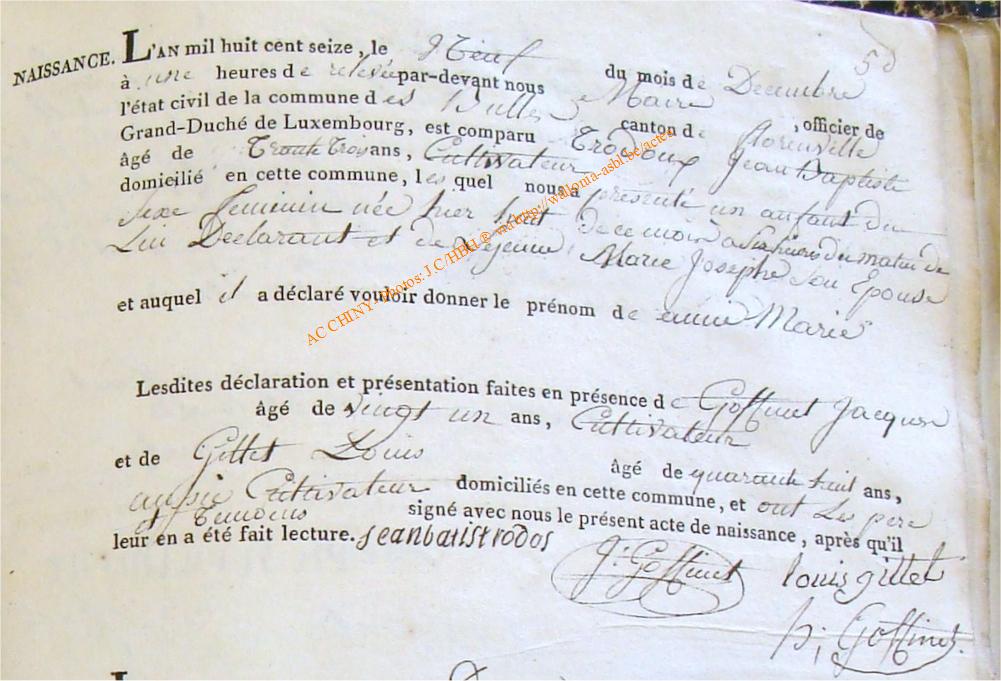 50
NAISSANCE. L'AN mil huit cent seize, le Neuf du mois de Decembre
à une heures de relevée par-devant nous Maire , officier de
l'état civil de la commune des Bulles canton de florenville
Grand-Duché de Luxembourg, est comparu Trodoux Jean Baptiste
âgé de Trente Trois ans, Cultivateur
domicilié en cette commune, les quel nous a présenté un anfant du
Sexe feminin née hier huit de ce mois a Six heures du matin de
Lui Declarant et de Lejeune Marie Josephe Son Epouse
et auquel il a déclaré vouloir donner le prénom de anne Marie
Lesdites déclaration et présentation faites en présence de Goffinet Jacques
âgé de vingt un ans, Cultivateur
et de Gillet Louis âgé de quarante huit ans,
aussi Cultivateur domiciliés en cette commune, et ont Les pere
et Temoins signé avec nous le présent acte de naissance, après qu'il
leur en a été fait lecture. jeanbatistrodos
J: Goffinet louis gillet
h; Goffinet.
AC CHINY - Photos: J.C/HBH ® via http://wallonia-asbl.be/actes